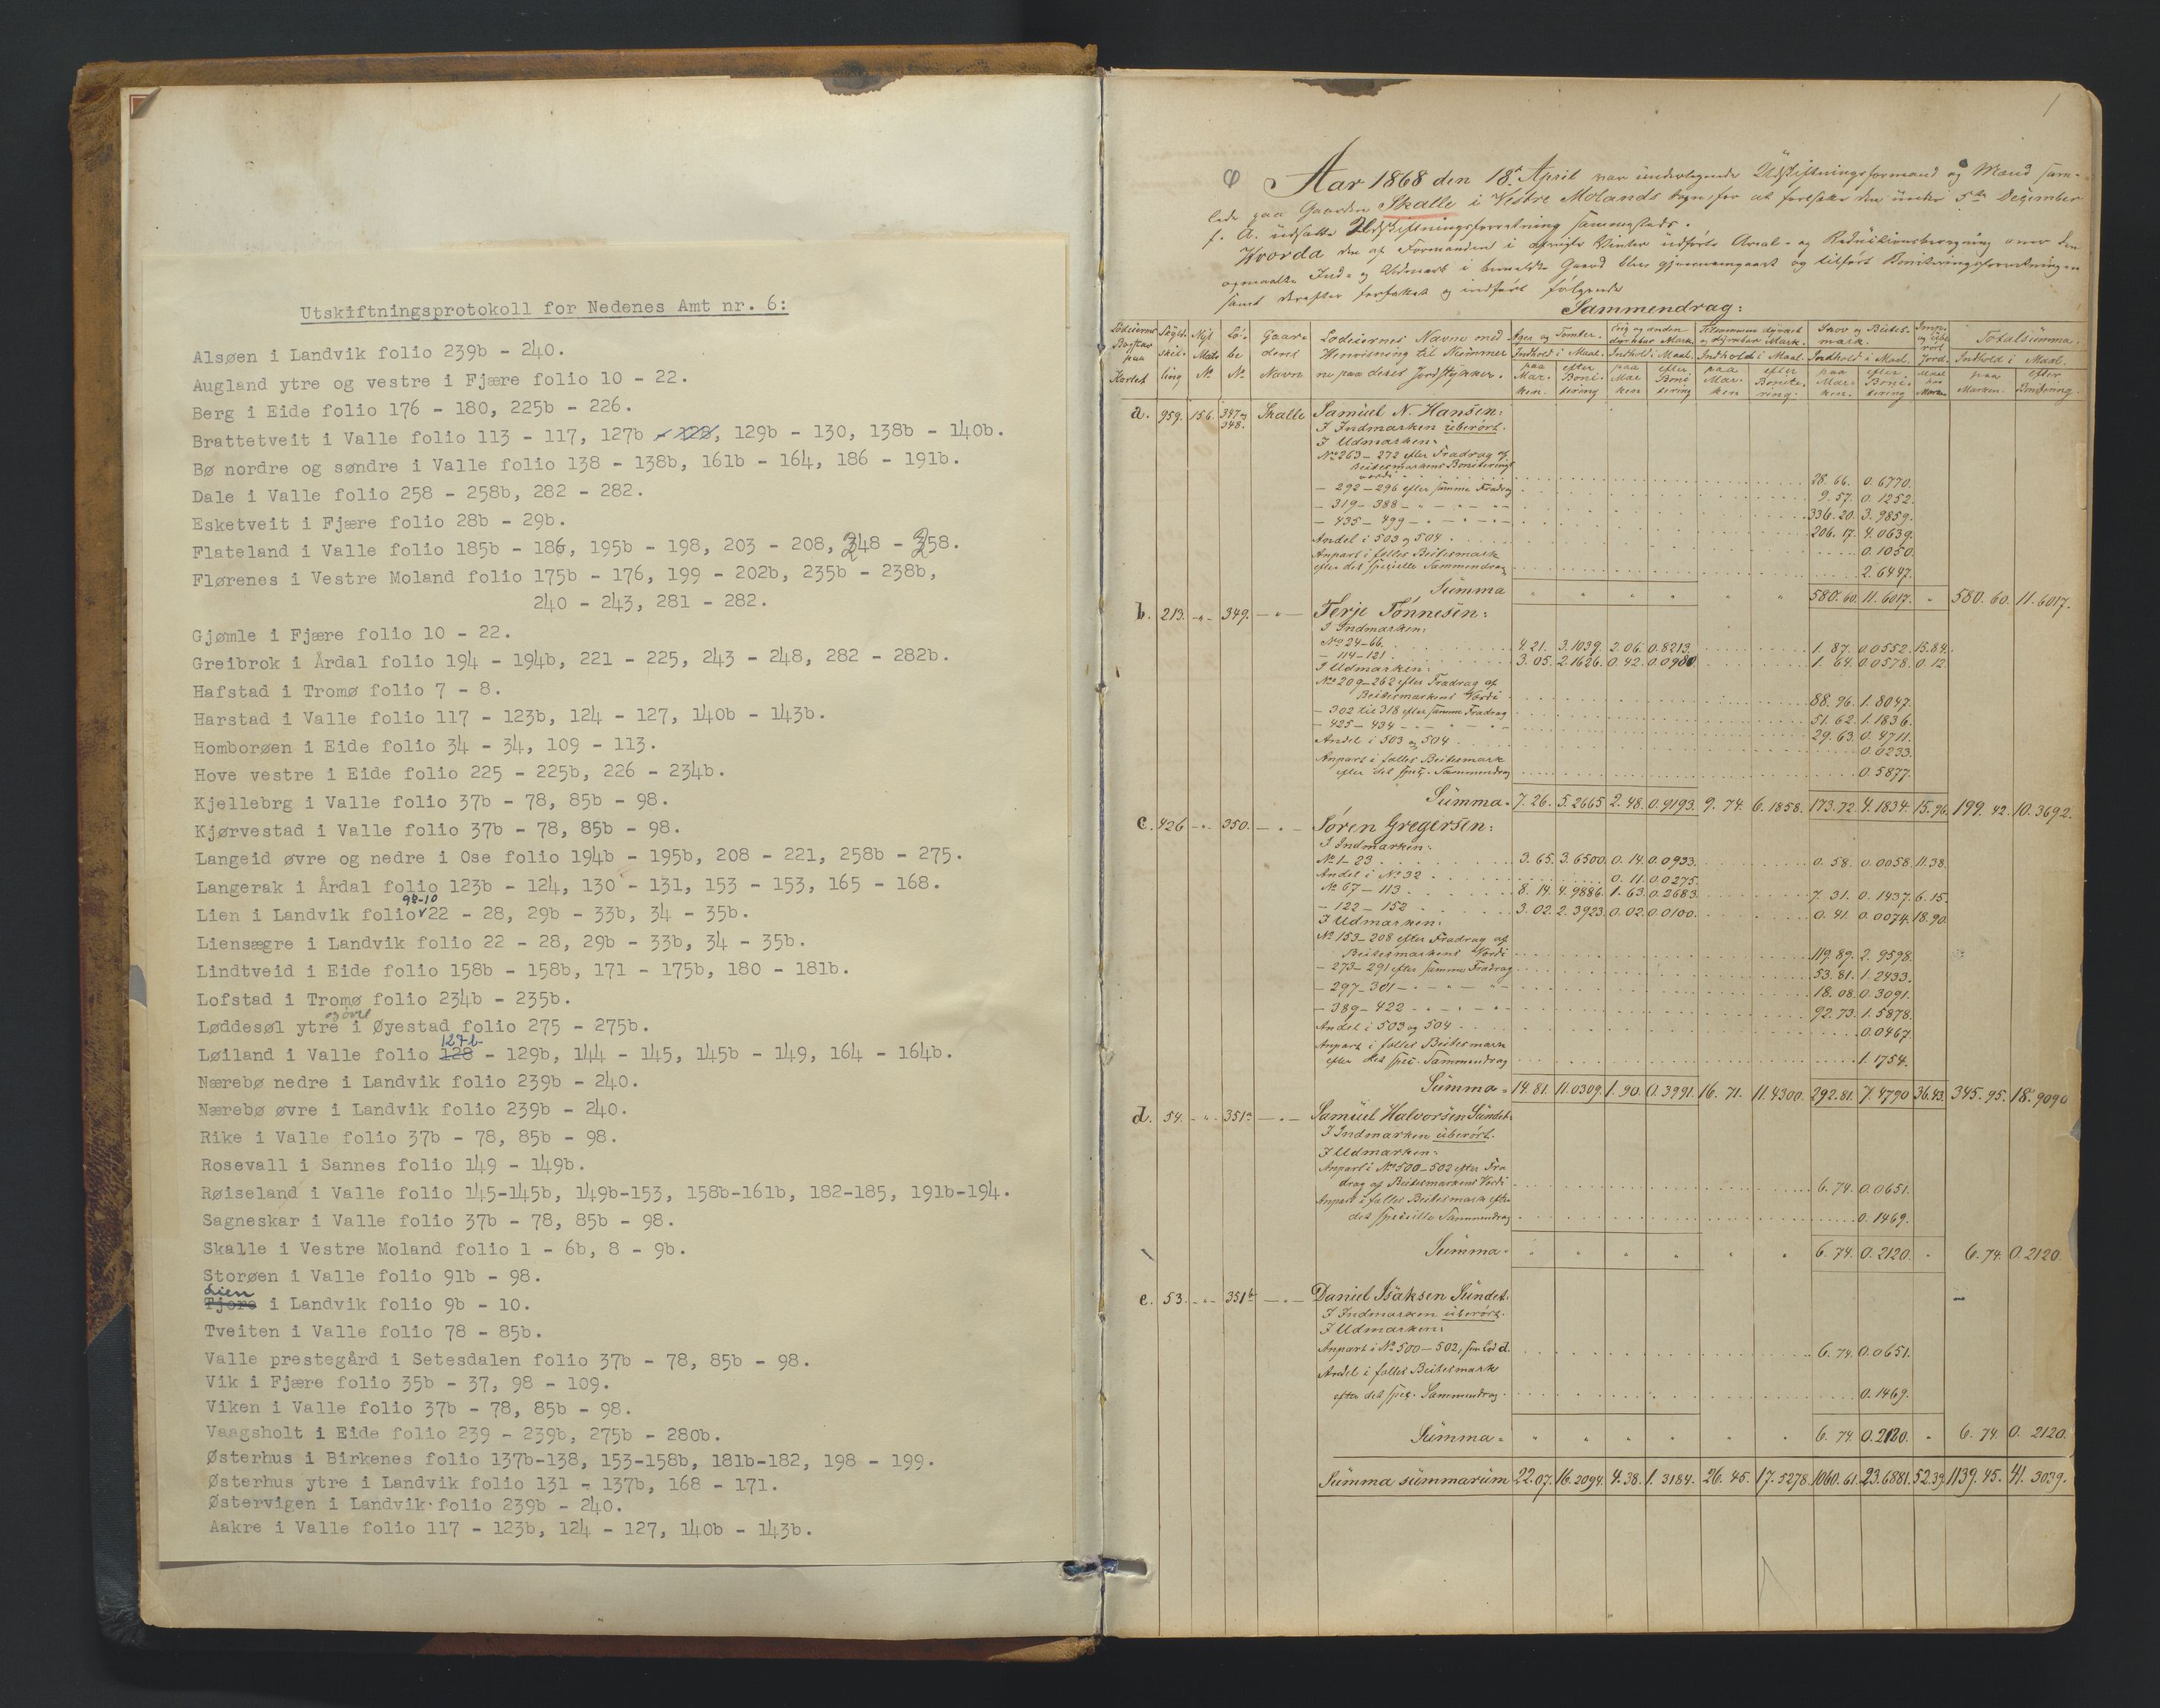 Utskiftningsprotokoll for Nedenes Amt nr. 6:
Alsøen i Landvik folio 239b - 240.
Augland ytre og vestre i Fjære folio 10 - 22.
Berg i Eide folio 176 - 180, 225b - 226.
Brattetveit i Valle folio 113 - 117, 127b - 128, 129b - 130, 138b - 140b.
Bø nordre og søndre i Valle folio 138 - 138b, 161b - 164, 186 - 191b.
Dale i Valle folio 258 - 258b, 282 - 282.
Esketveit i Fjære folio 28b - 29b.
Flateland i Valle folio 185b - 186, 195b - 198, 203 - 208, 248 - 258.
Flørenes i Vestre Moland folio 175b - 176, 199 - 202b, 235b - 238b,
240 - 243, 281 - 282.
Gjømle i Fjære folio 10 - 22.
Greibrok i Årdal folio 194 - 194b, 221 - 225, 243 - 248, 282 - 282b.
Hafstad i Tromø folio 7 - 8.
Harstad i Valle folio 117 - 123b, 124 - 127, 140b - 143b.
Homborøen i Eide folio 34 - 34, 109 - 113.
Hove vestre i Eide folio 225 - 225b, 226 - 234b.
Kjellebrg i Valle folio 37b - 78, 85b - 98.
Kjørvestad i Valle folio 37b - 78, 85b - 98.
Langeid øvre og nedre i Ose folio 194b - 195b, 208 - 221, 258b - 275.
Langerak i Årdal folio 123b - 124, 130 - 131, 153 - 153, 165 - 168.
9b-10
Lien i Landvik folio 22 - 28, 29b - 33b, 34 - 35b.
Liensægre i Landvik folio 22 - 28, 29b - 33b, 34 - 35b.
Lindtveid i Eide folio 158b - 158b, 171 - 175b, 180 - 181b.
Lofstad i Tromø folio 234b - 235b.
Løddesøl ytre i Øyestad folio 275 - 275b.
127b
Løiland i Valle folio 128 - 129b, 144 - 145, 145b - 149, 164 - 164b.
Nærebø nedre i Landvik folio 239b - 240.
Nærebø øvre i Landvik folio 239b - 240.
Rike i Valle folio 37b - 78, 85b - 98.
Rosevall i Sannes folio 149 - 149b.
Røiseland i Valle folio 145-145b, 149b-153, 158b-161b, 182-185, 191b-194.
Sagneskar i Valle folio 37b - 78, 85b - 98.
Skalle i Vestre Moland folio 1 - 6b, 8 - 9b.
Storøen i Valle folio 91b - 98.
Lien
Tjore i Landvik folio 9b - 10.
Tveiten i Valle folio 78 - 85b.
Valle prestegård i Setesdalen folio 37b - 78, 85b - 98.
Vik i Fjære folio 35b - 37, 98 - 109.
Viken i Valle folio 37b - 78, 85b - 98.
Vaagsholt i Eide folio 239 - 239b, 275b - 280b.
Østerhus i Birkenes folio 137b-138, 153-158b, 181b-182, 198 - 199.
Østerhus ytre i Landvik folio 131 - 137b, 168 - 171.
Østervigen i Landvik folio 239b - 240.
Aakre i Valle folio 117 - 123b, 124 - 127, 140b - 143b.
1
Aar 1868 den 18de April var undertegnede Udskiftningsformand og Mænd sam-
lede paa Gaarden Skalle i Vestre Molands Sogn, for at foretage den under 5te December
f. A. udsatte Udskiftningsforretning sammesteds.
Hvorda den af Formanden i afvigte Vinter udførte Areal- og Reduktionsberegning over den
opmaalte Ind- og Udmark i bemeldte Gaard blev gjennemgaaet og tilført Boniteringsforretningen
samt derefter forfattet og indført følgende
Sammendrag:
Lodeierens Bogstav paa Kartet | Skyldskilling | Nyt Matr. No | Løbe No | Gaardens Navn | Lodeiernes Navne med Henvisning til Numerne paa deres Jordstykker. | Ager og Tomter. | Eng og anden dyrkbar Mark. | Tilsammen dyrket og dyrkbar Mark. | Skov og Beitesmark. | Totalsumma.
Indhold i Maal. Indhold i Maal. Indhold i Maal. Indhold i Maal. Jord. Indhold i Maal.
paa Marken. efter Bonitering
a. 959. 156. 347 og 348. Skalle Samuel N. Hansen:
I Indmarken uberørt.
I Udmarken:
No 263 - 272 efter Fradrag af
Beitesmarkens Boniterings
værdi 28. 66. 0. 6770.
- 292 - 296 efter samme Fradrag 9. 57. 0. 1252.
- 319 - 388 - " - 336. 20. 3. 9859.
- 435 - 499 - " - 206. 17. 4. 0639.
Andel i 503 og 504 0. 1050.
Anpart i fælles Beitesmark
efter det specielle Sammendrag 2. 6447.
Summa " " " " " " 580. 60. 11. 6017. " 580. 60. 11. 6017.
b. 213. - " - 349. - " - Terje Tønnesen:
I Indmarken:
No 24 - 66. 4. 21. 3. 1039. 2. 06. 0. 8213. 1. 87. 0. 0552. 15. 84.
- 114 - 121 3. 05. 2. 1626. 0. 42. 0. 0980. 1. 64. 0. 0578. 0. 12
I Udmarken:
No 209 - 262 efter Fradrag af
Beitesmarkens Værdi 88. 96. 1. 8047.
- 302 til 318 efter samme Fradrag 51. 62. 1. 1836.
- 425 - 434 - " - 29. 63. 0. 4711.
Andel i 503 og 504 0. 0233.
Anpart i fælles Beitesmark
efter det spec. Sammendrag 0. 5877.
Summa. 7. 26. 5. 2665 2. 48. 0. 9193. 9. 74. 6. 1858. 173. 72. 4. 1834. 15. 96. 199. 42. 10. 3692.
c. 426 - " - 350. - " - Søren Gregersen:
I Indmarken:
No 1 - 23 3. 65. 3. 6500. 0. 14. 0. 0933. 0. 58. 0. 0058. 11. 38.
Andel i No 32 0. 11. 0. 0275.
No 67 - 113 8. 14. 4. 9886. 1. 63. 0. 2683. 7. 31. 0. 1437. 6. 15.
- 122 - 152 3. 02. 2. 3923. 0. 02. 0. 0100. 0. 41. 0. 0074. 18. 90.
I Udmarken:
No 153 - 208 efter Fradrag af
Beitesmarkens Værdi 119. 89. 2. 9598.
- 273 - 291 efter samme Fradrag 53. 81. 1. 2433.
- 297 - 301 - " - 18. 08. 0. 3091.
- 389 - 422 - " - 92. 73. 1. 5878.
Andel i 503 og 504 0. 0467.
Anpart i fælles Beitesmark
efter det spec. Sammendrag 1. 1754.
Summa = 14. 81. 11. 0309. 1. 90. 0. 3991. 16. 71. 11. 4300. 292. 81. 7. 4790 36. 43. 345. 95. 18. 9090
d. 54. - " - 351a - " - Samuel Halvorsen Sundet.
I Indmarken uberørt.
I Udmarken:
Anpart i No 500 - 502 efter Fra
drag af Beitesmarkens Værdi 6. 74. 0. 0651.
Anpart i fælles Beitesmark efter
det specielle Sammendrag 0. 1469.
Summa = " " " " " " 6. 74. 0. 2120. " 6. 74. 0. 2120.
e. 53. - " - 351b - " - Daniel Isaksen Sundet.
I Indmarken uberørt.
I Udmarken:
Anpart i No 500 - 502, som Lod d. 6. 74. 0. 0651.
Andel i fælles Beitesmark
efter det spec. Sammendrag. 0. 1469.
Summa = " " " " " " 6. 74. 0. 2120. " 6. 74. 0. 2120.
Summa summarum 22. 07. 16. 2094. 4. 38. 1. 3184. 26. 45. 17. 5278. 1060. 61. 23. 6881. 52. 39. 1139. 45. 41. 3039.